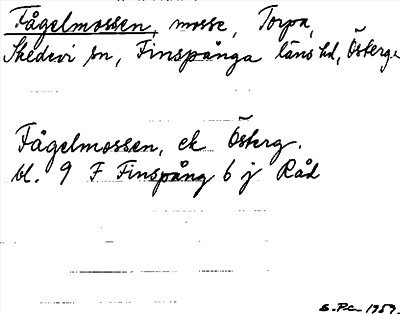 Fågelmossen, mosse, Torpa,
Skedevi sn, Finspånga läns hd, Österg.
Fågelmossen, ek Österg.
bl. 9 F Finspång 6 j Råd
1959.